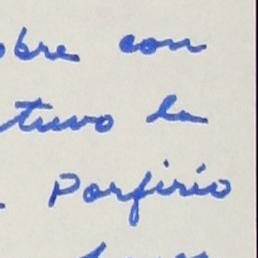 obre con
tuvo la
Porfirio